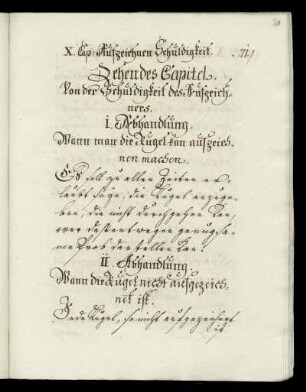 X. Cap: Aufzeichnen Schuldigkeit. 71)
Zehendes Capitel.
Von der Schuldigkeit des Aufzeich-
ners.
I. Abhandlung.
Wann man die Kugel kan aufzeich-
nen machen.
Es soll zu allen Zeiten er-
laubt seye, die Kugel
die nicht durchgehen
wer
Prob
II. Abhandlung.
Wann die Kugel nicht aufgezeich-
net ist.
Jede Kugel, so nicht aufgezeichnet
ist